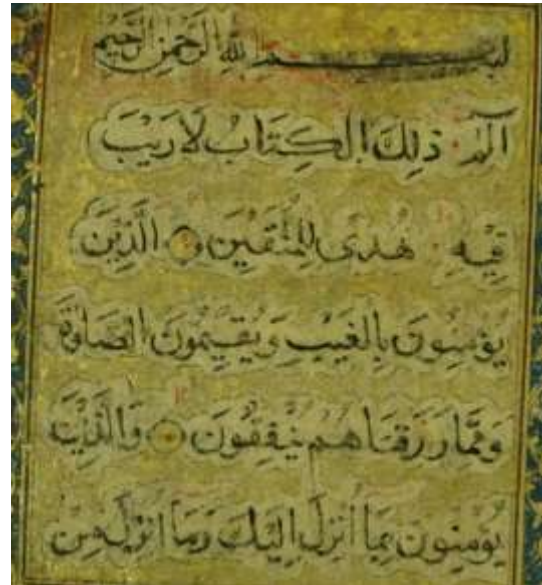 بسم الله الرحمن الرحيم
الم ذلِكَ الكِتَابُ لَا رَيْبَ
فِيْهِ هُدىً لِلمُتَّقِينَ الَّذِينَ
يُؤمِنُونَ بِالغَيْبِ وَيُقِيمُونَ الصَّلوٰةَ
وَمِمَّا رَزَقنَاهُم يُنفِقُونَ وَالَّذِينَ
يُؤمِنُونَ بِمَا اُنزِلَ اِلَيْكَ وَمَا اُنزِلَ مِن